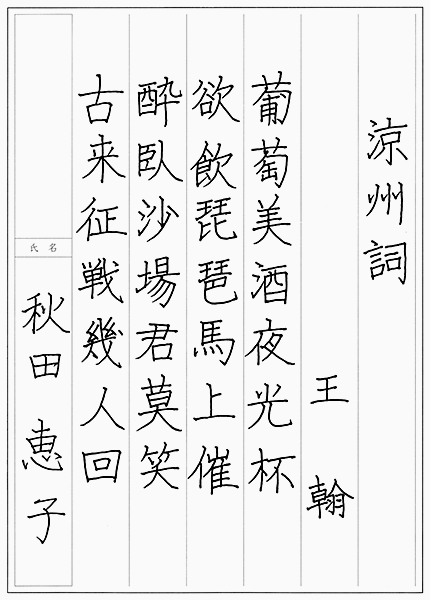 涼州詞
王翰
葡萄美酒夜光杯
欲飲琵琶馬上催
酔臥沙場君莫笑
古来征戦幾人回
氏名
秋田恵子